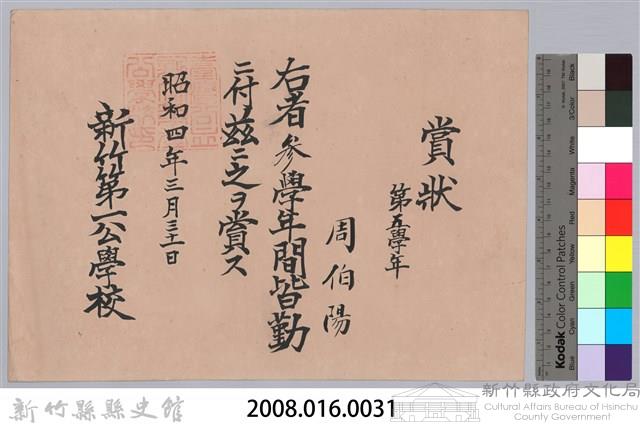 賞狀
第五學年
周伯陽
右者參學年間皆勤
ニ付茲ニ之ヲ賞ス
昭和四年三月三十一日
新竹第一公學校
Black
3/Color
White
Magenta
Red
Yellow
Green
Cyan
Blue
Kodak Color Control Patches
新竹縣縣史館
2008.016.0031
新竹縣政府文化局
Cultural Affairs Bureau of Hsinchu
County Government